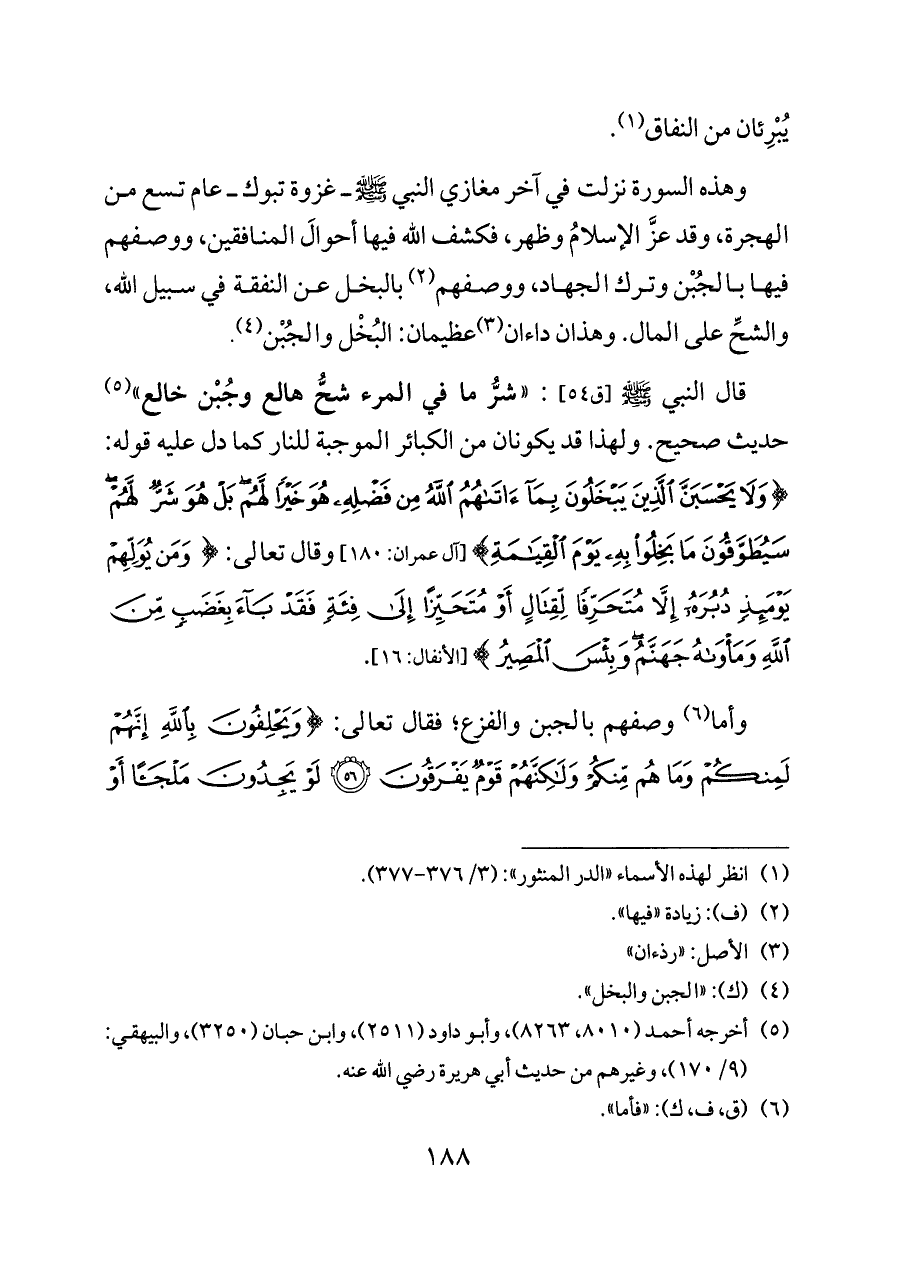 يُبْرِئان من النفاق(١).
وهذه السورة نزلت في آخر مغازي النبي ﷺ ـ غزوة تبوك ـ عام تسع من
الهجرة، وقد عزَّ الإسلامُ وظهر، فكشف الله فيها أحوالَ المنافقين، ووصفهم
فيها بالجُبْن وترك الجهاد، ووصفهم(٢) بالبخل عن النفقة في سبيل الله،
والشحِّ على المال. وهذان داءان(٣) عظيمان: البُخْل والجُبْن(٤).
قال النبي ﷺ [ق٥٤] : «شرُّ ما في المرء شحُّ هالع وجُبْن خالع»(٥)
حديث صحيح. ولهذا قد يكونان من الكبائر الموجبة للنار كما دل عليه قوله:
﴿ وَلَا يَحْسَبَنَّ ٱلَّذِينَ يَبْخَلُونَ بِمَآ ءَاتَىٰهُمُ ٱللَّهُ مِن فَضْلِهِۦ هُوَ خَيْرًا لَّهُم ۖ بَلْ هُوَ شَرٌّ لَّهُمْ ۖ
سَيُطَوَّقُونَ مَا بَخِلُوا۟ بِهِۦ يَوْمَ ٱلْقِيَٰمَةِ﴾ [آل عمران: ١٨٠] وقال تعالى: ﴿ وَمَن يُوَلِّهِمْ
يَوْمَئِذٍ دُبُرَهُۥٓ إِلَّا مُتَحَرِّفًا لِّقِتَالٍ أَوْ مُتَحَيِّزًا إِلَىٰ فِئَةٍ فَقَدْ بَآءَ بِغَضَبٍ مِّنَ
ٱللَّهِ وَمَأْوَىٰهُ جَهَنَّمُ ۖ وَبِئْسَ ٱلْمَصِيرُ ﴾ [الأنفال: ١٦].
وأما(٦) وصفهم بالجبن والفزع؛ فقال تعالى: ﴿ وَيَحْلِفُونَ بِٱللَّهِ إِنَّهُمْ
لَمِنكُمْ وَمَا هُم مِّنكُمْ وَلَٰكِنَّهُمْ قَوْمٌ يَفْرَقُونَ ۝٥٦ لَوْ يَجِدُونَ مَلْجَـًٔا أَوْ
(١) انظر لهذه الأسماء «الدر المنثور»: (٣/ ٣٧٦-٣٧٧).
(٢) (ف): زيادة «فيها».
(٣) الأصل: «رذءان»
(٤) (ك): «الجبن والبخل».
(٥) أخرجه أحمد (٨٠١٠، ٨٢٦٣)، وأبو داود (٢٥١١)، وابن حبان (٣٢٥٠)، والبيهقي:
(٩/ ١٧٠)، وغيرهم من حديث أبي هريرة رضي الله عنه.
(٦) (ق، ف، ك): «فأما».
١٨٨